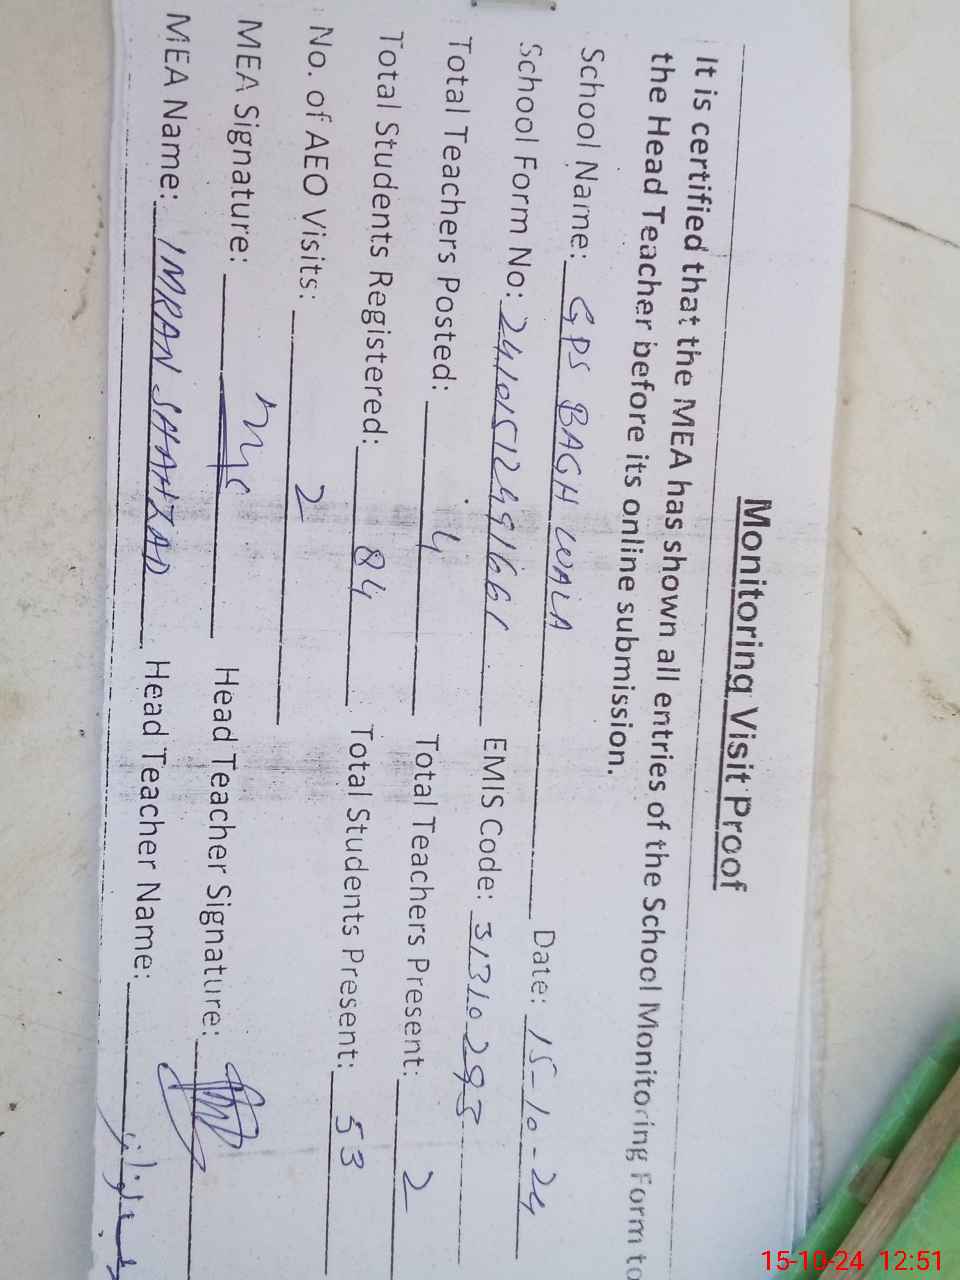 Monitoring Visit Proof
It is certified that the MEA has shown all entries of the School Monitoring Form to
the Head Teacher before its online submission.
School Name: GPS BAGH WALA Date: 15-10-24
School Form No: 241015124991661 EMIS Code: 31310293
Total Teachers Posted: 4 Total Teachers Present: 2
Total Students Registered: 84 Total Students Present: 53
No. of AEO Visits: 2
MEA Signature: Head Teacher Signature:
MEA Name: IMRAN SHAHZAD Head Teacher Name:
15-10-24 12:51